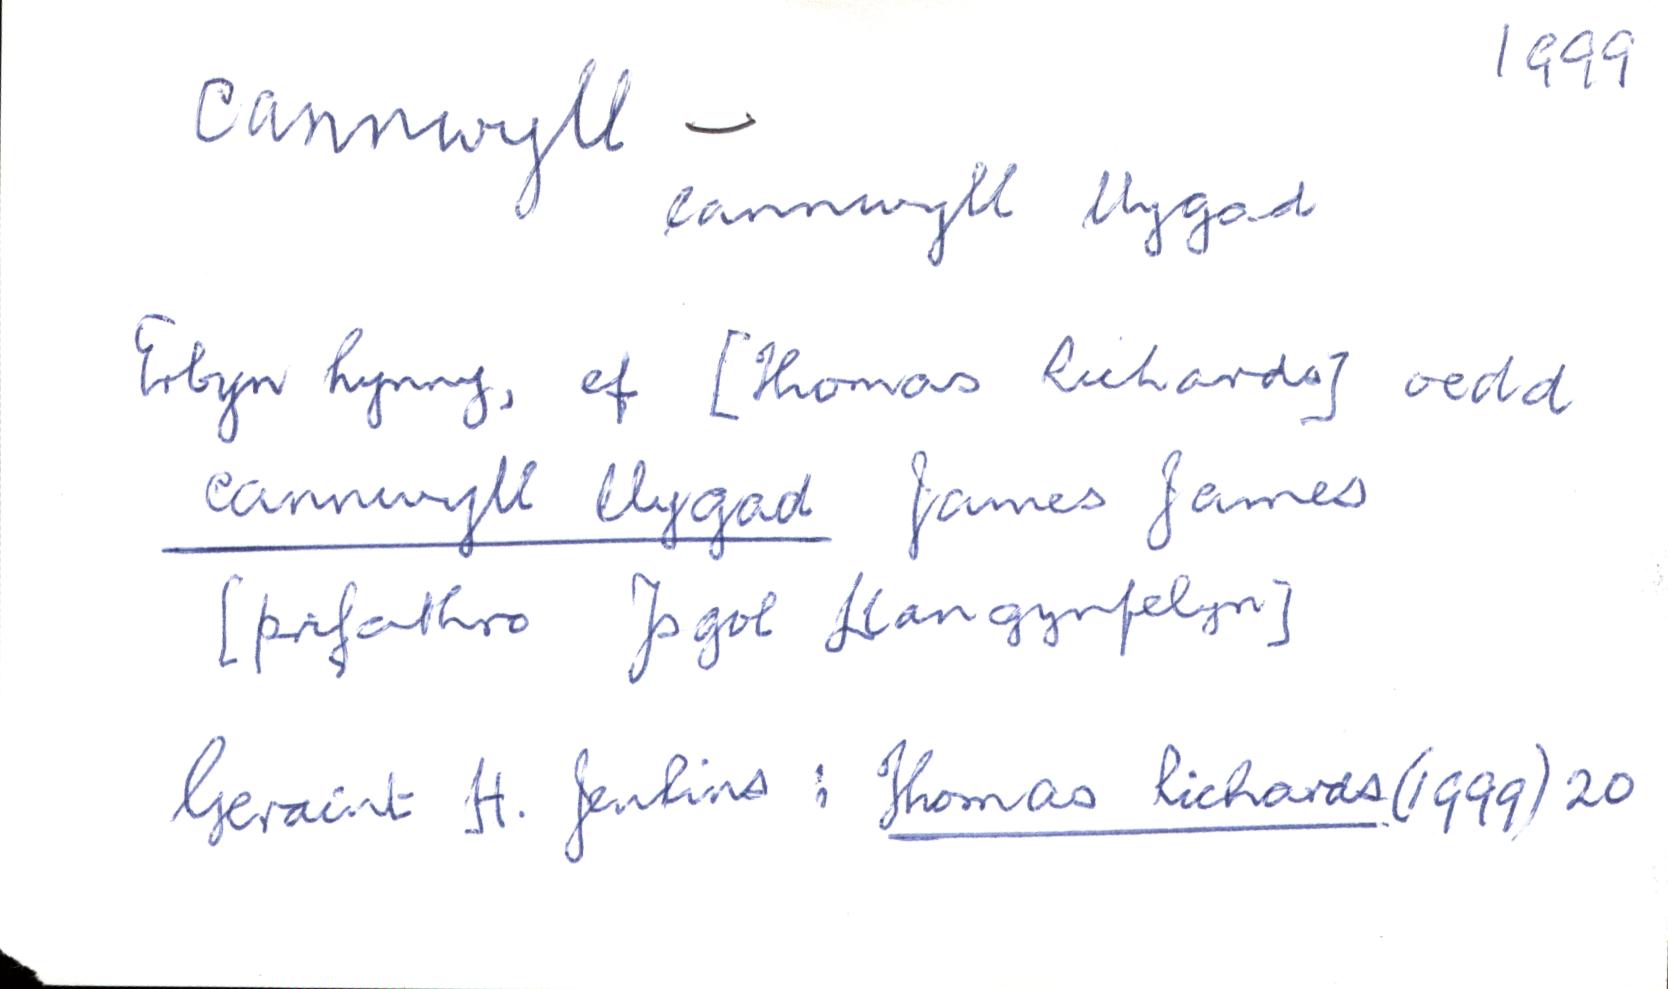 1999
Cannwyll –
cannwyll llygad
Erbyn hynny, ef [Thomas Richards] oedd
cannwyll llygad James James
[prifathro Ysgol Llangynfelyn]
Geraint H. Jenkins : Thomas Richards (1999) 20